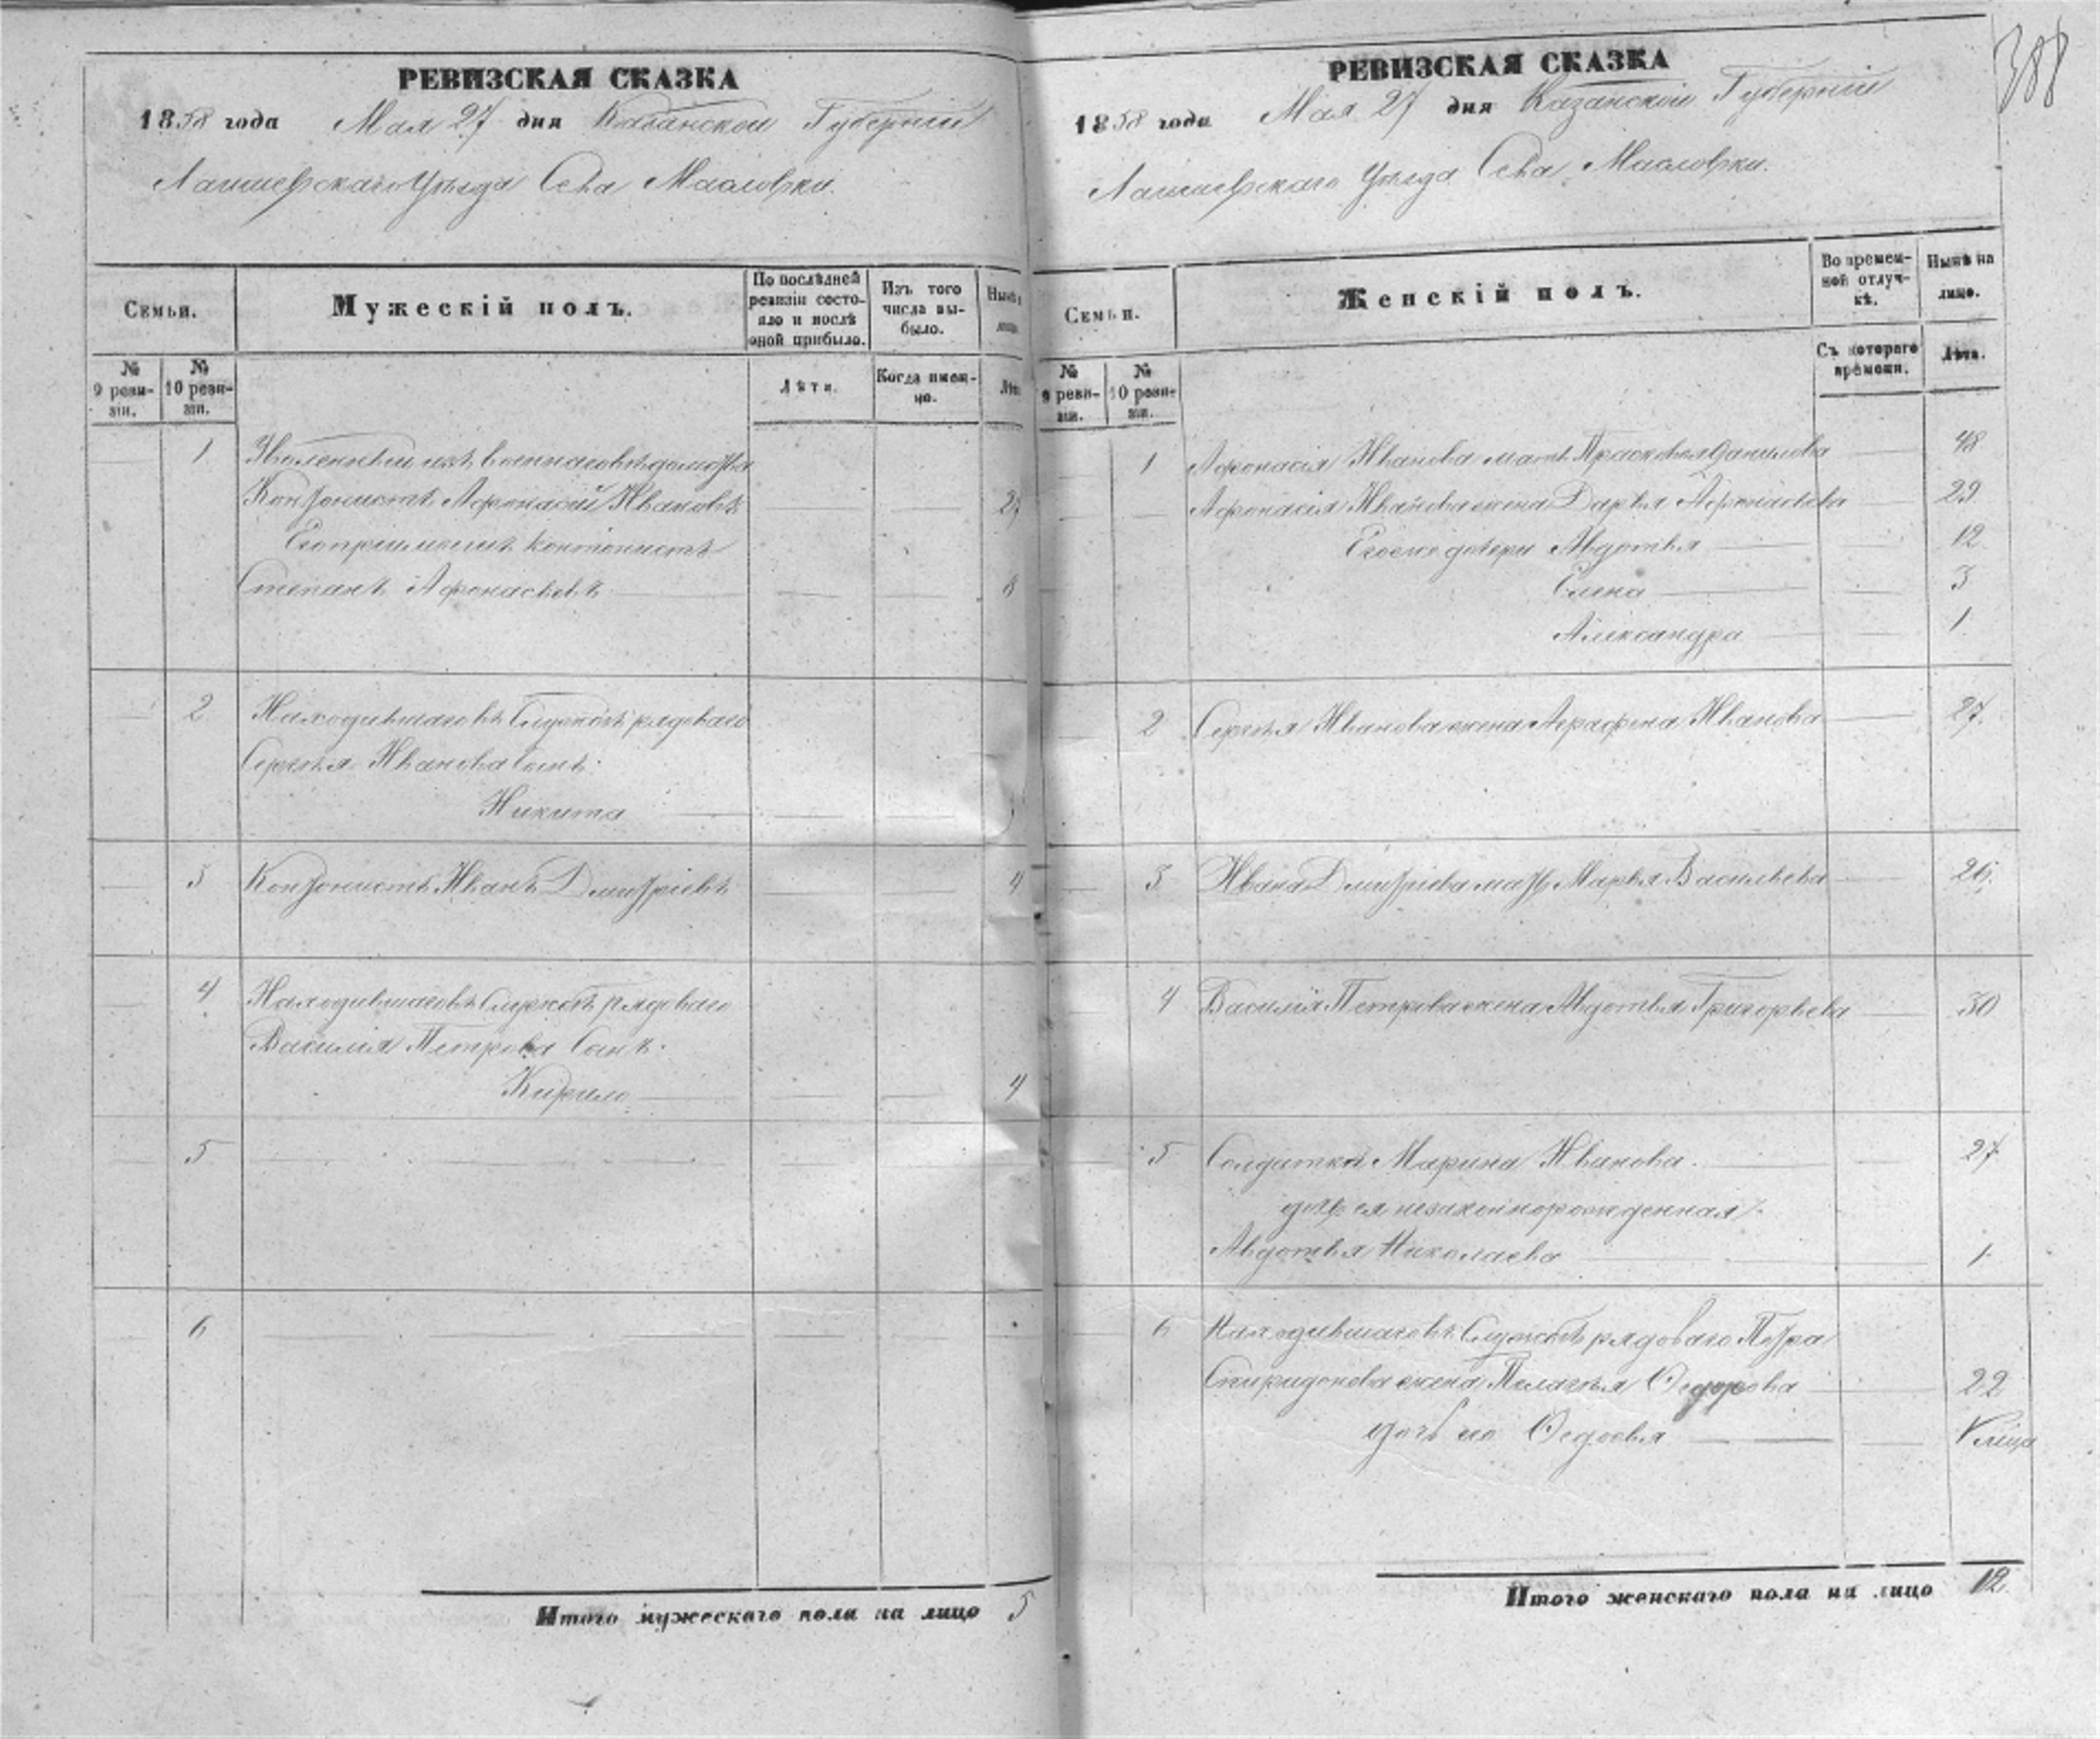 РЕВИЗСКАЯ СКАЗКА
1858 года Мая 27 дня Казанской Губерніи
Лаишевскаго Уѣзда Села Масловки.
Семьи.
Мужескій полъ.
По послѣдней ревизіи состояло и послѣ оной прибыло.
Изъ того числа выбыло.
Нынѣ
лицо
№ 9 ревизіи.
№ 10 ревизіи.
Лѣта.
Когда именно.
Лѣт
1 Уволенный изъ военнаго вѣдомства
Кантонистъ Афонасій Ивановъ 27
Его пріемышъ кантонистъ
Степанъ Афонасьевъ 6
2 Находившагося въ Службѣ рядоваго
Сергѣя Иванова Сынъ
Никита
3 Кантонистъ Иванъ Дмитріевъ 4
4 Находившагося въ Службѣ рядоваго
Василія Петрова Сынъ
Кирило 4
5
6
Итого мужескаго пола на лицо 5
388
РЕВИЗСКАЯ СКАЗКА
1858 года Мая 27 дня Казанской Губерніи
Лаишевскаго Уѣзда Села Масловки.
Семьи.
Женскій полъ.
Во временной отлучкѣ.
Нынѣ на лицо.
№ 9 ревизіи.
№ 10 ревизіи.
Съ котораго времени.
Лѣта.
1 Афонасія Иванова мать Прасковья Данилова 48
Афонасія Иванова жена Дарья Афонасьева 29
Его же дочери Авдотья 12
Елена 3
Александра 1
2 Сергѣя Иванова жена Аграфена Иванова 27.
3 Ивана Дмитріева мать Марья Васильева 26.
4 Василія Петрова жена Авдотья Григорьева 30
5 Солдатка Марина Иванова 27
дочь ея незаконнорожденная
Авдотья Николаева 1
6 Находившагося въ Службѣ рядоваго Петра
Спиридонова жена Пелагѣя Ѳедорова 22
дочь его Ѳедосья
Итого женскаго пола на лицо 12